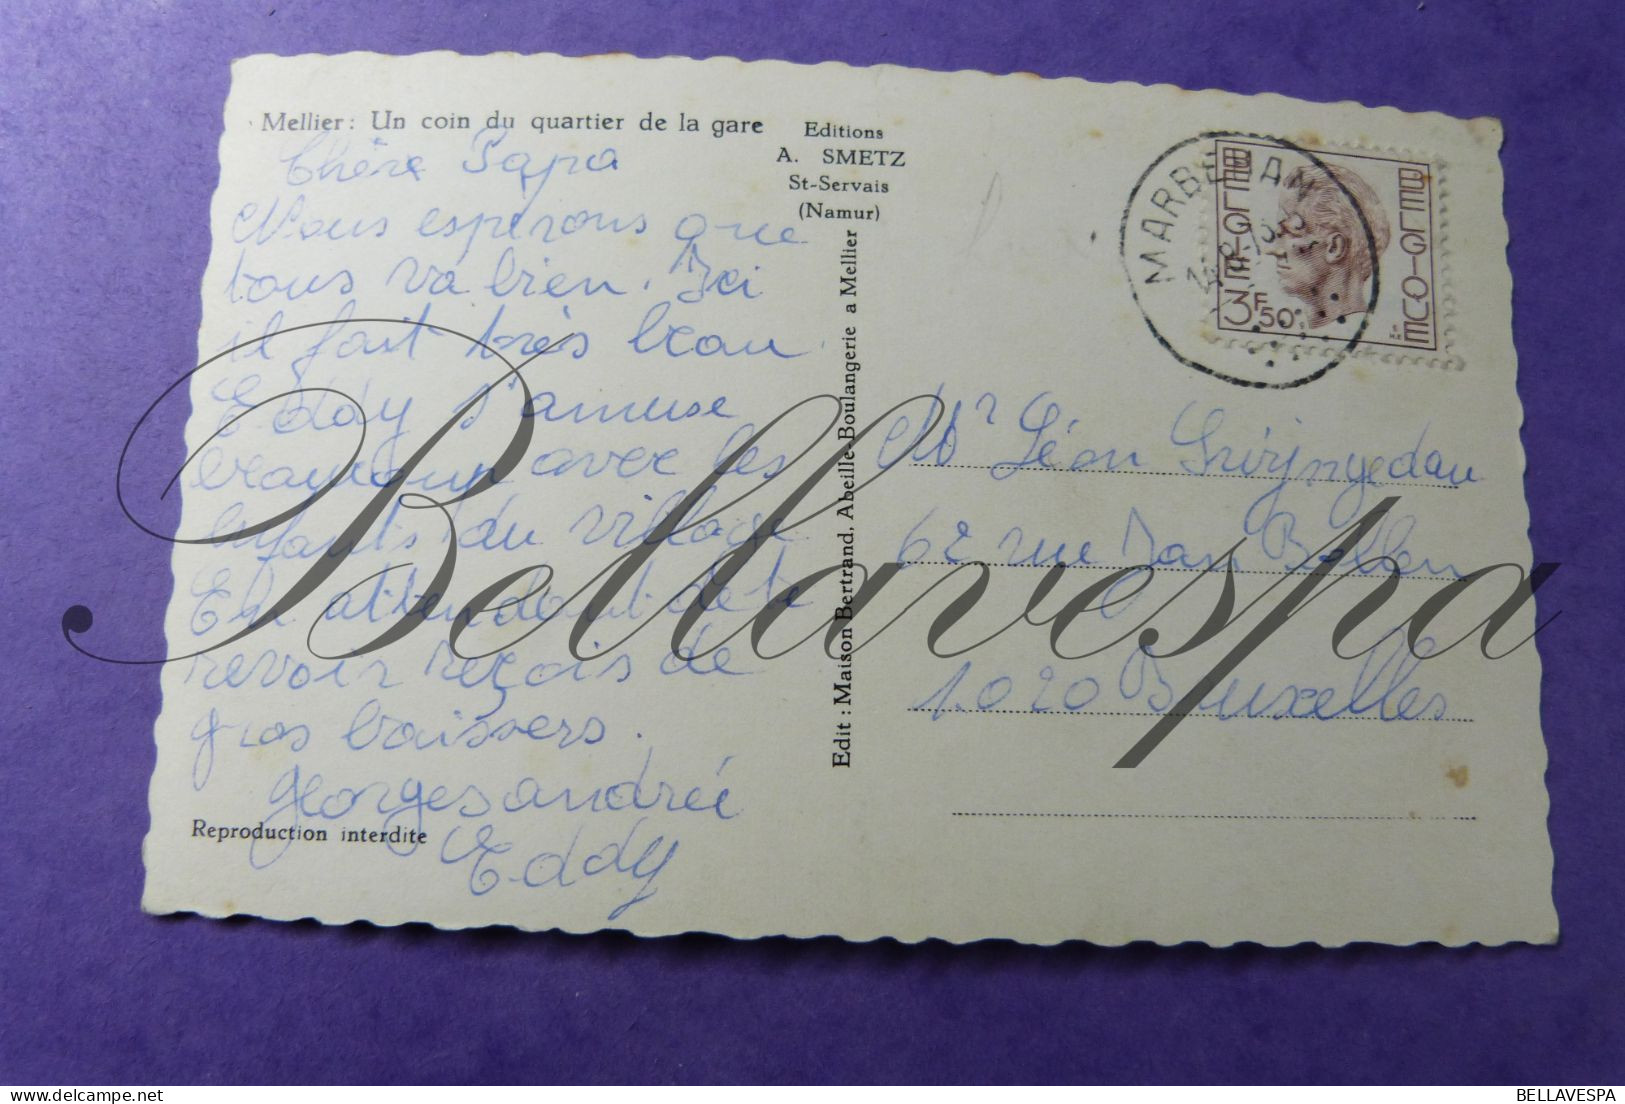 Mellier: Un coin du quartier de la gare
Editions
A. SMETZ
St-Servais
(Namur)
Chère Papa
Nous esperons que
tous va bien. Ici
il fait très beau.
Eddy s'amuse
beaucoup avec les
enfants du village
En attendant de te
revoir reçois de
gros baissers.
Georges andrée
Eddy
Reproduction interdite
Edit : Maison Bertrand, Abeille-Boulangerie a Mellier
MARBEHAN
BELGIE
BELGIQUE
3F50
Mr Léon
62 rue Jan Bollen
1020 Bruxelles
Bellavespa
BELLAVESPA